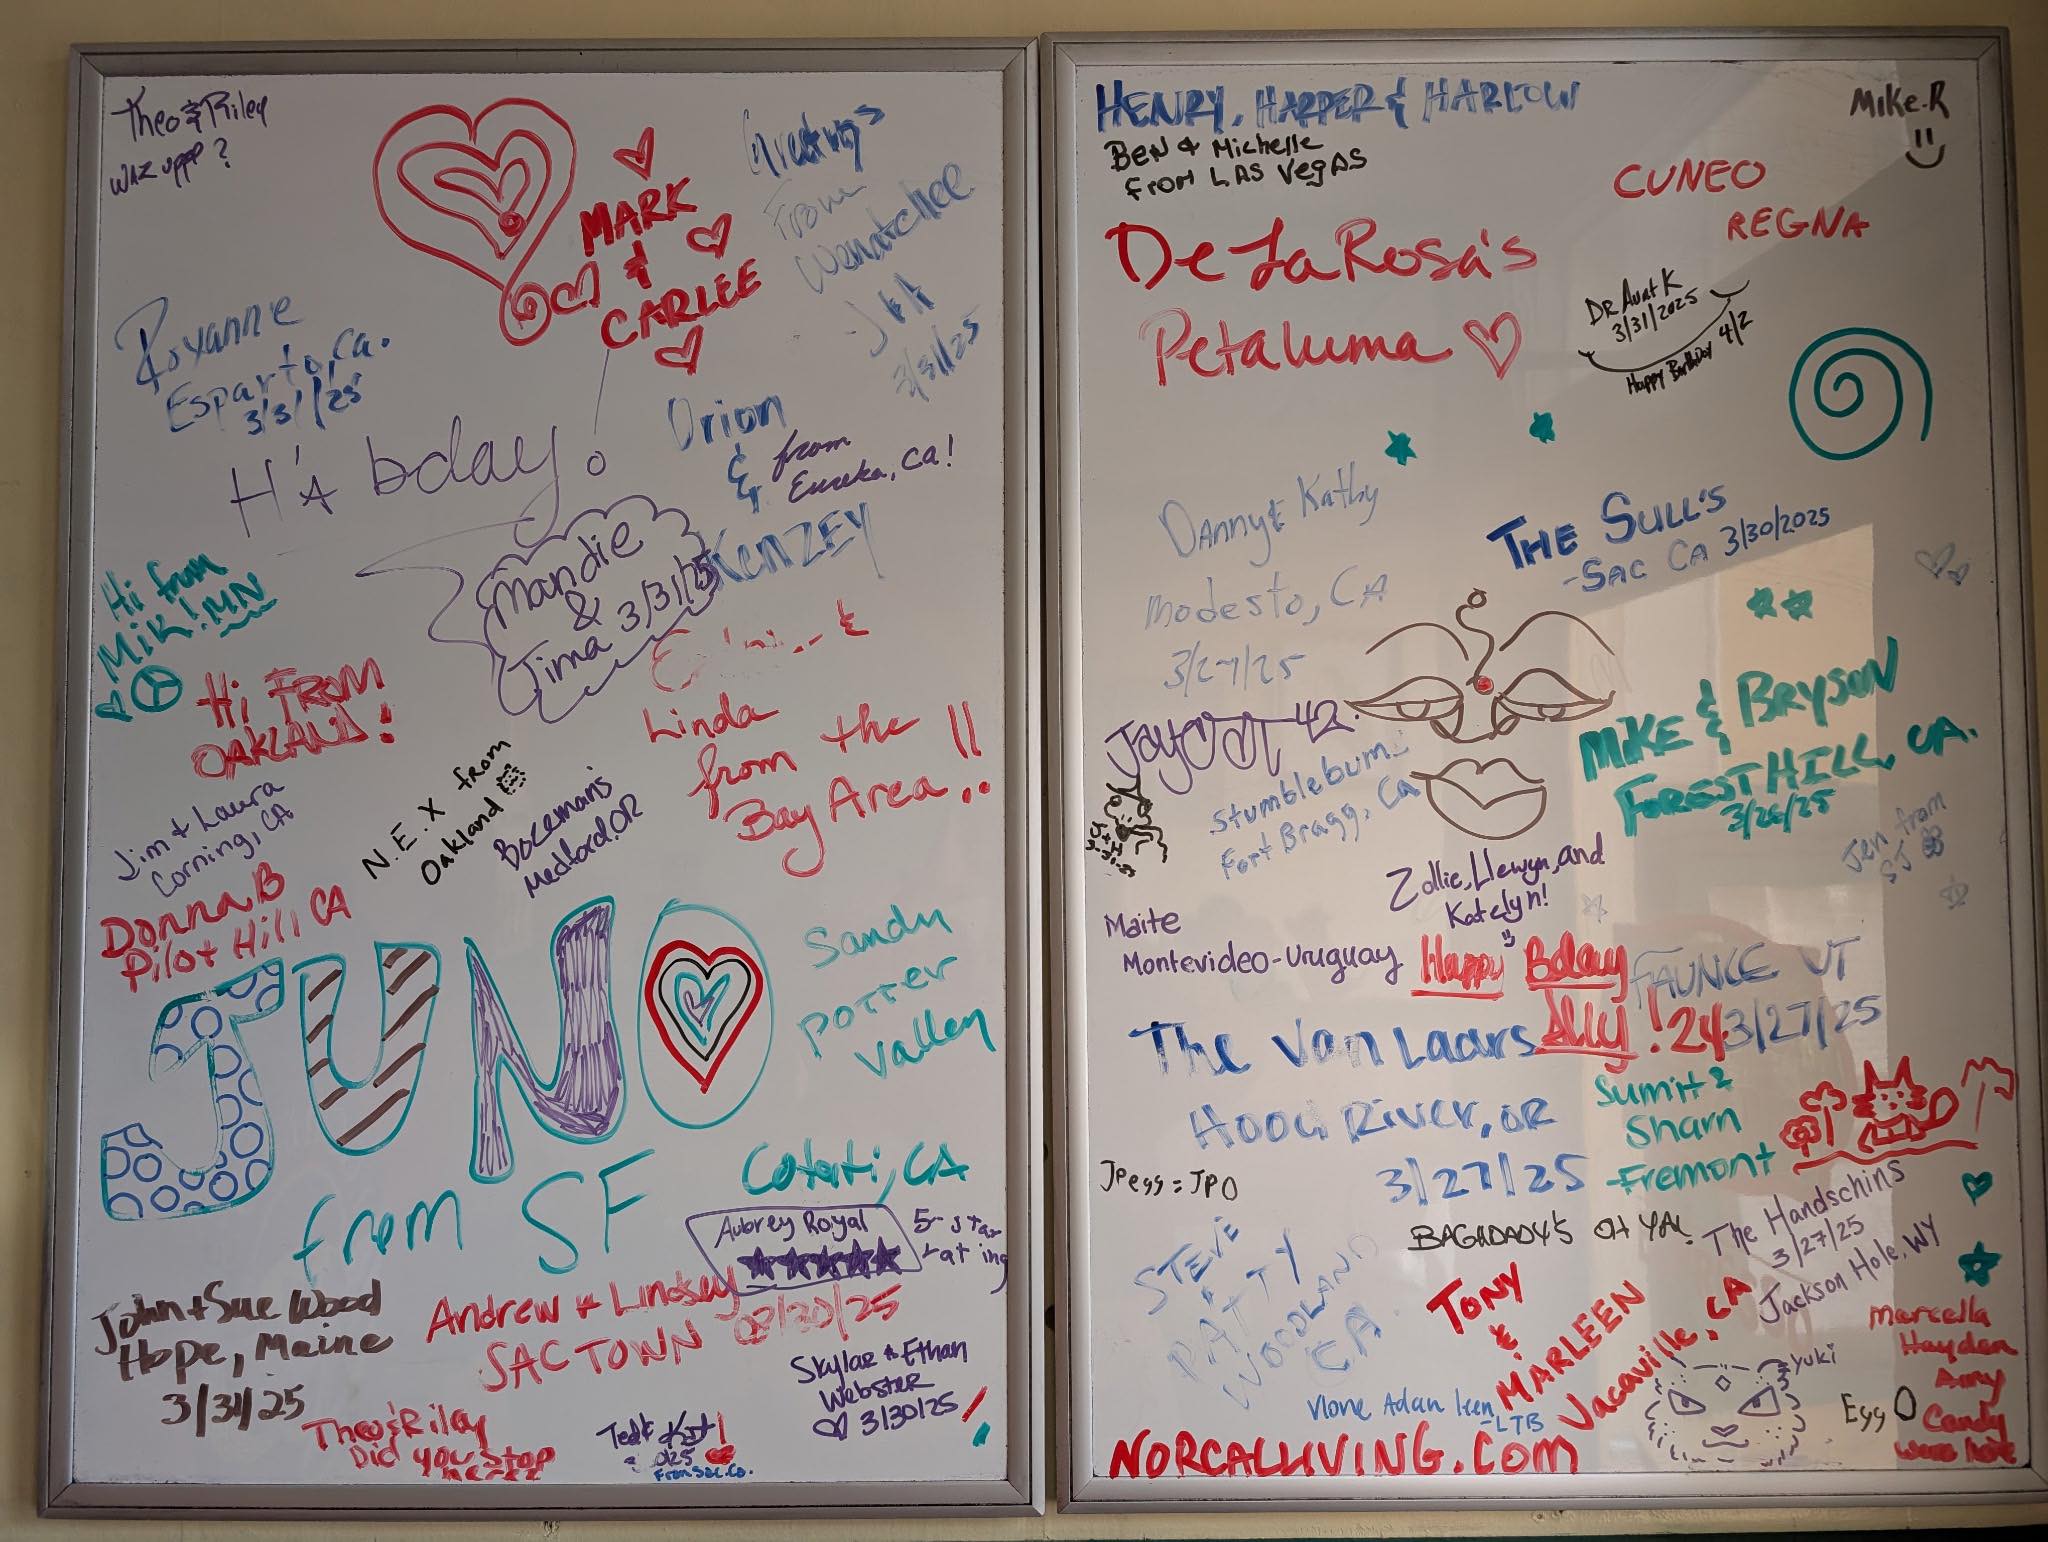 Theo & Riley
WAZ uppp?
MARK
&
CARLEE
Greetings
From
Wenatchee
3/31/25
Roxanne
Esparto, Ca.
3/31/25
H'A bday!
Orion
&
KENZEY
from
Eureka, CA!
Mandie
&
Tima 3/31/25
Hi from
MiK! MN
Hi FROM
OAKLAND!
&
Linda
from the
Bay Area!!
Jim + Laura
Corning, CA
N.E.X from
Oakland
Bozeman's
Medford, OR
Donna B
Pilot Hill CA
JUNO
from SF
Sandy
Potter
Valley
Cotati, CA
Aubrey Royal
5-star
rating
John + Sue Wood
Hope, Maine
3/31/25
Andrew & Lindsey
SAC TOWN 03/30/25
Skylar & Ethan
Webster
3/30/25
Theo & Riley
Did you stop
Ted &
025
From Sac. Co.
HENRY, HARPER & HARLOW
BEN & Michelle
From LAS VEGAS
MiKe.R
CUNEO
REGNA
De La Rosa's
Petaluma
DR Aunt K
3/31/2025
Happy Birthday 4/2
Danny & Kathy
Modesto, CA
3/27/25
THE SULL'S
-SAC CA 3/30/2025
MIKE & BRYSON
FOREST HILL, CA.
3/26/25
42
Stumblebum
Fort Bragg, Ca
Jen from
SJ
Zollie, Llewyn, and
Katelyn!
Maite
Montevideo-Uruguay
Happy Bday
Ally! 24
FAUNCE VT
3/27/25
The Van Laars
HOOD RIVER, OR
3/27/25
Sumit &
Sharn
-Fremont
JPegg = JPO
BAGHDADY'S OH YA!
The Handschins
3/27/25
Jackson Hole, WY
STEVE
PATTY
WOODLAND
CA.
TONY
&
MARLEEN
Vacaville, CA
Marcella
Hayden
Amy
Candy
were here
yuki
Egg O
-LTB
NORCALLIVING.COM